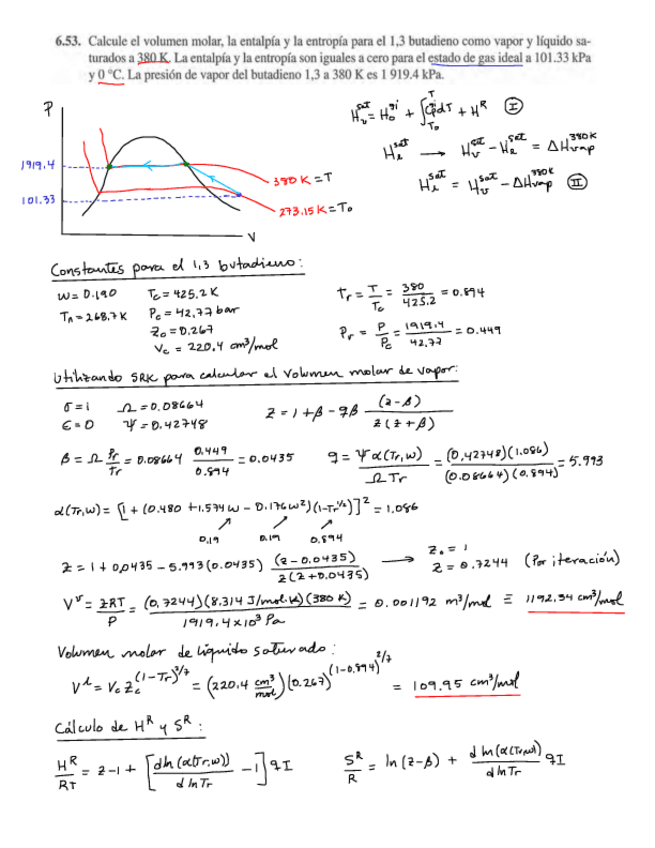 6.53. Calcule el volumen molar, la entalpía y la entropía para el 1,3 butadieno como vapor y líquido sa-
turados a 380 K. La entalpía y la entropía son iguales a cero para el estado de gas ideal a 101.33 kPa
y 0 °C. La presión de vapor del butadieno 1,3 a 380 K es 1 919.4 kPa.
P
1919.4
101.33
380 K = T
273.15 K = T₀
V
H_v^sat = H_0^gi + ∫_{T₀}^{T} Cp dT + H^R (I)
H_l^sat → H_v^sat - H_l^sat = ΔH_vap^380K
H_l^sat = H_v^sat - ΔH_vap^380K (II)
Constantes para el 1,3 butadieno:
ω = 0.190 Tc = 425.2 K
Tn = 268.7 K Pc = 42,77 bar
Zc = 0.267
Vc = 220,4 cm³/mol
Tr = T/Tc = 380/425.2 = 0.894
Pr = P/Pc = 1919.4/42.77 = 0.449
Utilizando SRK para calcular el volumen molar de vapor:
σ = 1 Ω = 0.08664
ε = 0 Ψ = 0.42748
Z = 1 + β - qβ (z-β)/(z(z+β))
β = Ω Pr/Tr = 0.08664 0.449/0.894 = 0.0435
q = Ψα(Tr,ω)/(ΩTr) = (0,42748)(1.086)/((0.08664)(0.894)) = 5.993
α(Tr,ω) = [1 + (0.480 + 1.574ω - 0.176ω²)(1-Tr^½)]² = 1.086
0.19 0.19 0.894
Z = 1 + 0,0435 - 5.993(0.0435) (z-0.0435)/(z(z+0.0435)) → Z₀ = 1
Z = 0.7244 (Por iteración)
V^v = ZRT/P = (0,7244)(8.314 J/mol·K)(380 K)/(1919.4×10³ Pa) = 0.001192 m³/mol ≡ 1192.34 cm³/mol
Volumen molar de líquido saturado:
V^l = Vc Zc^(1-Tr)^2/7 = (220,4 cm³/mol)(0.267)^(1-0,894)^2/7 = 109.95 cm³/mol
Cálculo de H^R y S^R:
H^R/RT = z-1 + [dln(α(Tr,ω))/d ln Tr - 1] qI
S^R/R = ln(z-β) + d ln(α(Tr,ω))/d ln Tr qI